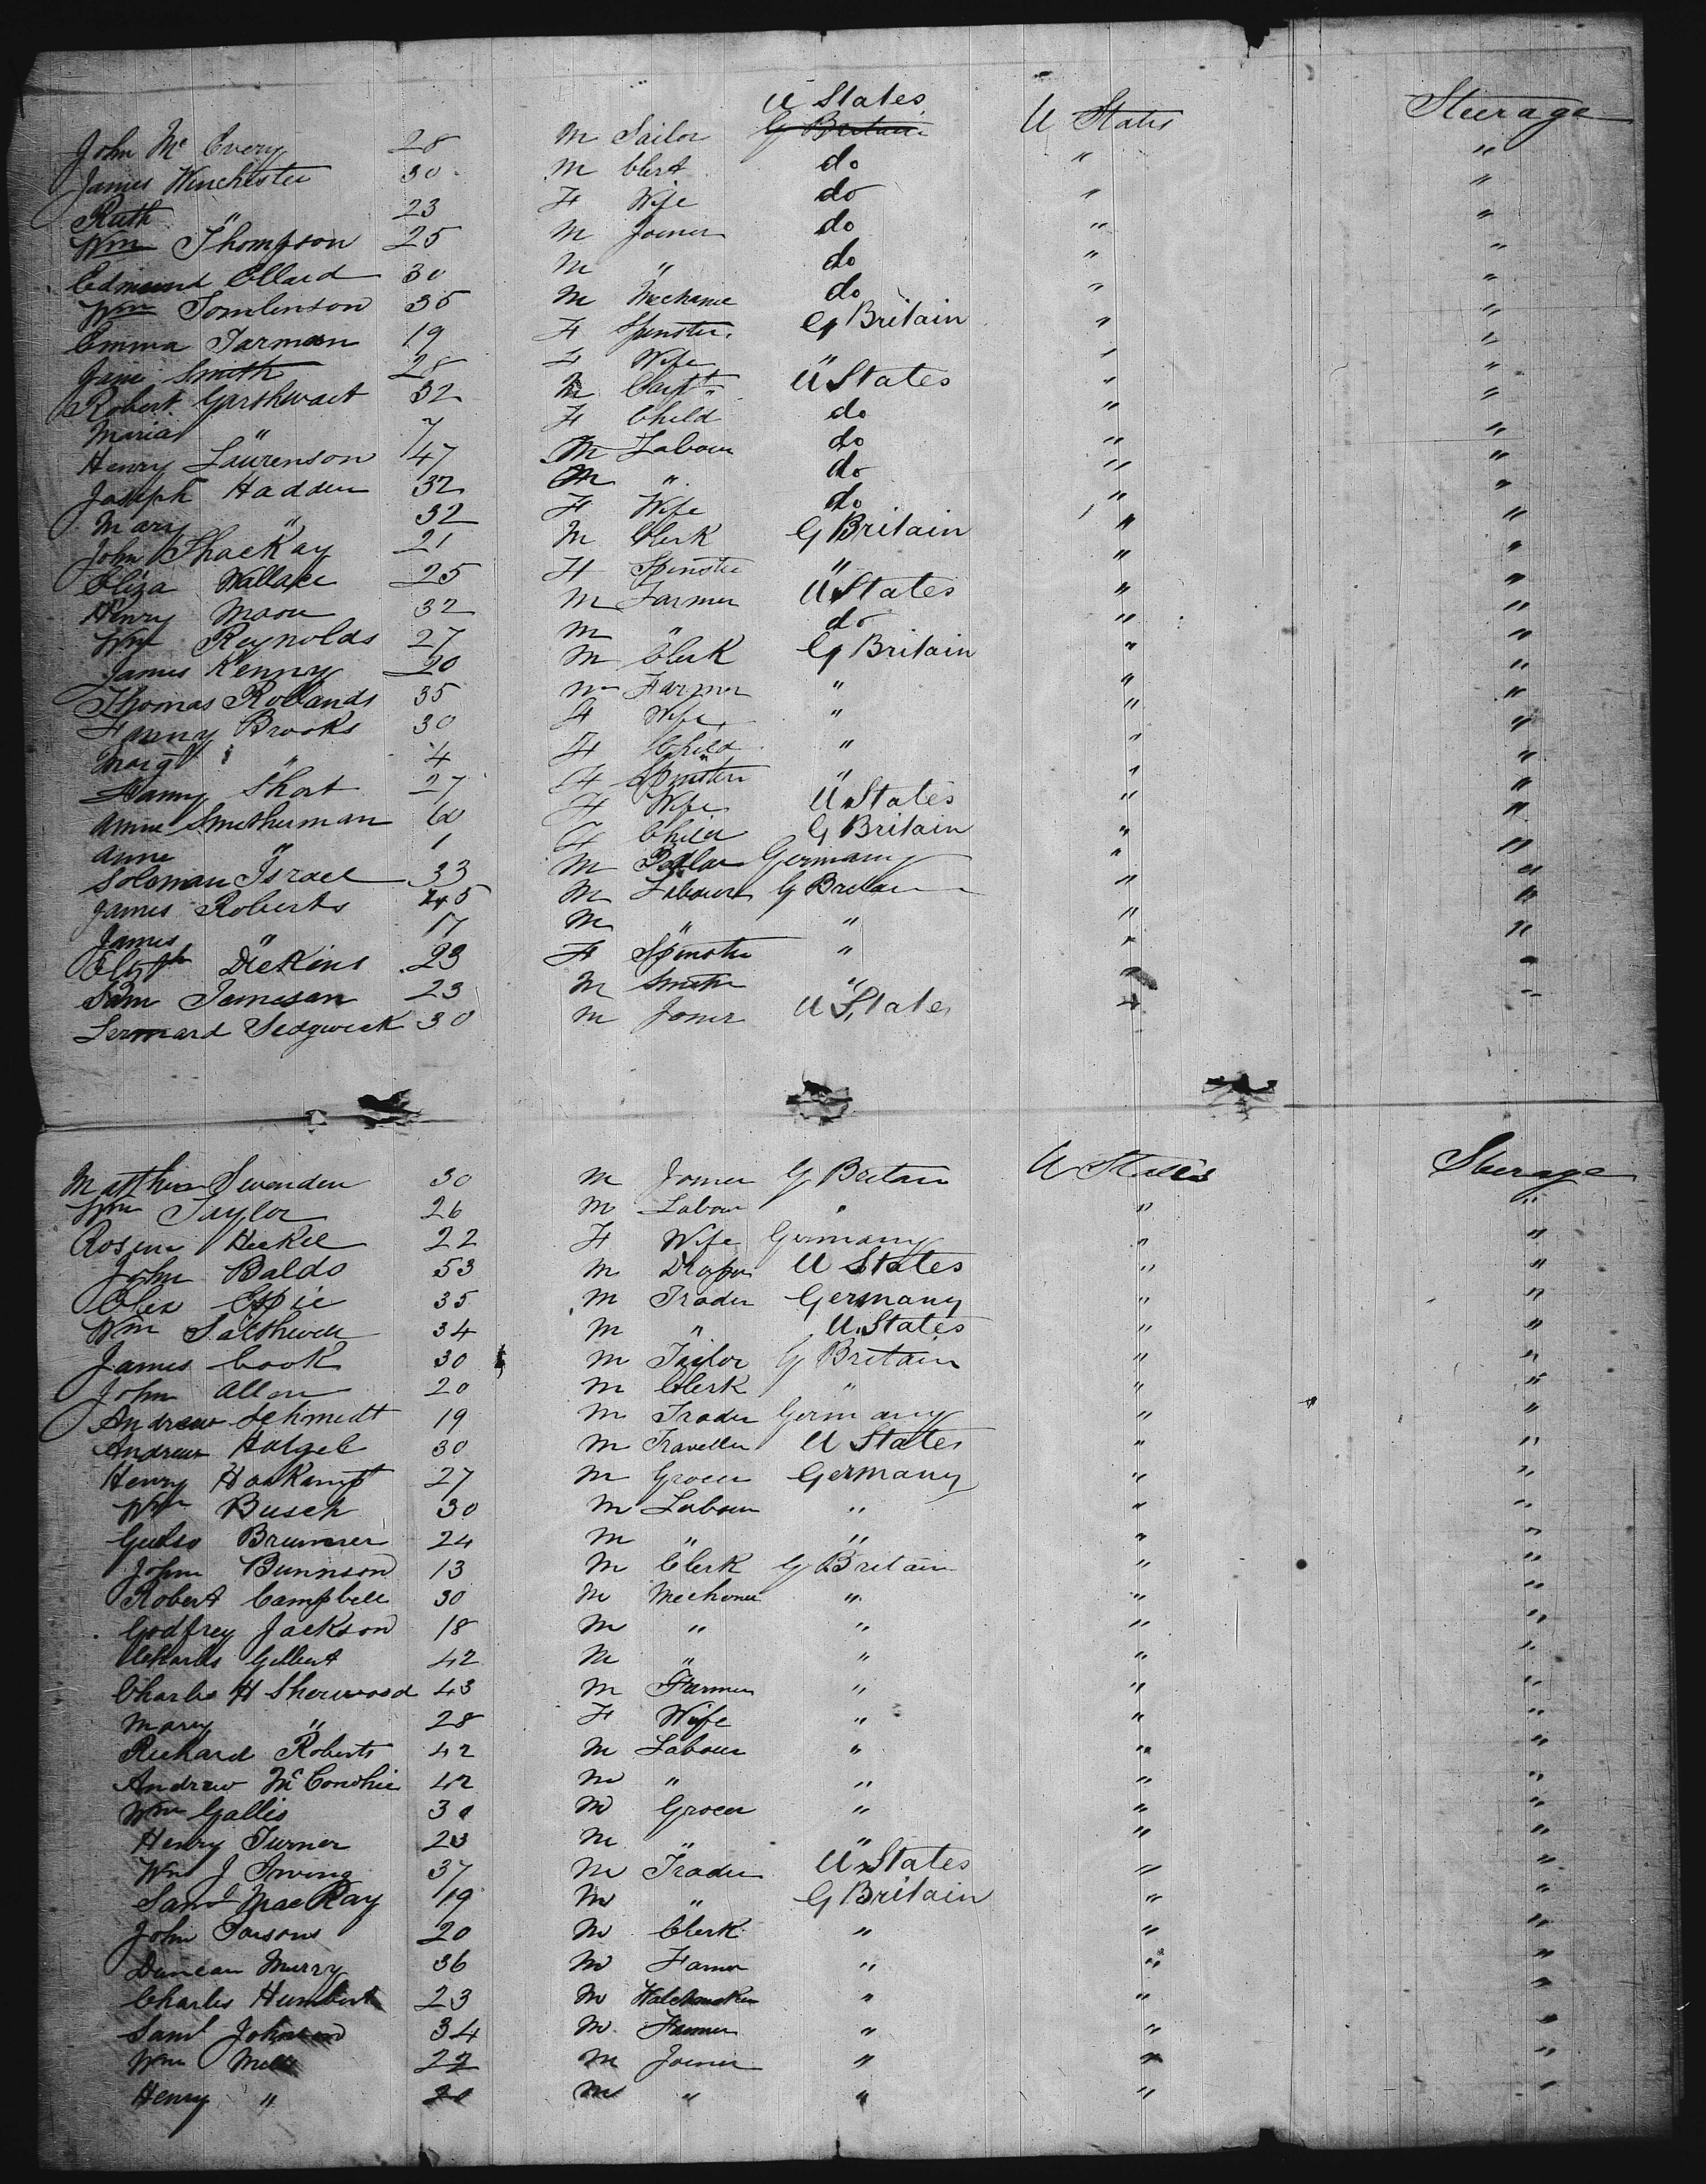 U States
John Mc Every 28 M Tailor G Britain U States Steerage
James Winchester 30 M Clerk do " "
Ruth " 23 F Wife do " "
Wm Thompson 25 M Joiner do " "
Edmund Ellard 30 M " do " "
Wm Tomlinson 35 M Mechanic do " "
Emma Jarman 19 F Spinster G Britain " "
Jane Smith 28 F Wife " " "
Robert Garthwait 32 M Carpt U States " "
Maria " 7 F Child do " "
Henry Laurenson 47 M Labour do " "
Joseph Hadden 32 M " do " "
Mary " 32 F Wife do " "
John Shackay 21 M Clerk G Britain " "
Eliza Wallace 25 F Spinster " " "
Henry Moon 32 M Farmer U States " "
Wm Reynolds 27 M " do " "
James Kenny 20 M Clerk G Britain " "
Thomas Rollands 35 M Farmer " " "
Fanny Brooks 30 F Wife " " "
Margt " 4 F Child " " "
Hanny Short 27 F Spinster " " "
Anne Smitherman 60 F Wife U States " "
Anne " 1 F Child G Britain " "
Soloman Israel 33 M Pedlar Germany " "
James Roberts 45 M Labourer G Britain " "
James " 17 M " " " "
Elizth Dickins 23 F Spinster " " "
Sam Jameson 23 M Smith " " "
Lernard Sedgwick 30 M Joner U States " "
Mathew Swenden 30 M Joiner G Britain U States Steerage
Wm Taylor 26 M Labour " " "
Rosine Heckel 22 F Wife Germany " "
John Baldo 53 M Draper U States " "
Espie 35 M Trader Germany " "
Wm Salthwell 34 M " U. States " "
James Cook 30 M Tailor G Britain " "
John Allan 20 M Clerk " " "
Andrew Schmidt 19 M Trader Germany " "
Andrew Hatzel 30 M Traveller U States " "
Henry Hoskampt 27 M Grocer Germany " "
Wm Busch 30 M Labour " " "
Brunner 24 M " " " "
John Bunnson 13 M Clerk G Britain " "
Robert Campbell 30 M Mechanic " " "
Godfrey Jackson 18 M " " " "
Charles Gilbert 42 M " " " "
Charles H Sherwood 43 M Farmer " " "
Mary " 28 F Wife " " "
Richard Roberts 42 M Labour " " "
Andrew McConchie 42 M " " " "
Wm Gallis 30 M Grocer " " "
Henry Turner 23 M " " " "
Wm J Irving 37 M Trader U States " "
Saml MacKay 19 M " G Britain " "
John Parsons 20 M Clerk " " "
Duncan Murry 36 M Farmer " " "
Charles Humbert 23 M Watchmaker " " "
Saml Johnson 34 M Farmer " " "
Wm Mills 22 M Joiner " " "
Henry " 20 M " " " "